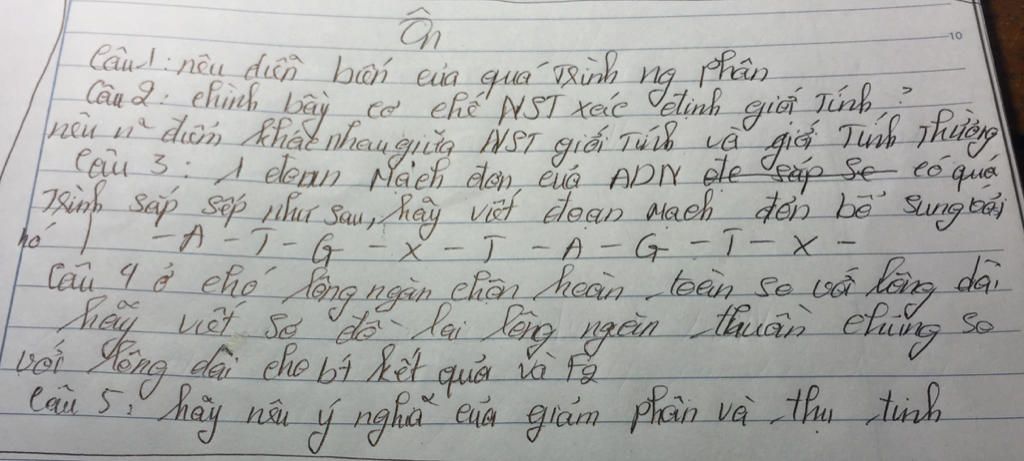 Ôn
10
Câu 1: nêu diễn biến của quá trình ng phân
Câu 2: chình bầy cơ chế NST xác định giới tính?
nêu n² điển khác nhau giữa NST giới tính và giới tính thường
Câu 3: 1 đoạn mạch đơn của ADN đc sắp se có quá
trình sắp sếp như sau, hãy viết đoạn mạch đơn bổ sung cái
nó | - A - T - G - X - T - A - G - T - X -
Câu 4 ở chó lông ngắn chộn hoàn toàn so với lông dài
hãy viết sơ đồ lai lông ngắn thuần chủng so
với lông dài cho bt kết quả và F2
Câu 5: hãy nêu ý nghĩa của giảm phân và thụ tinh